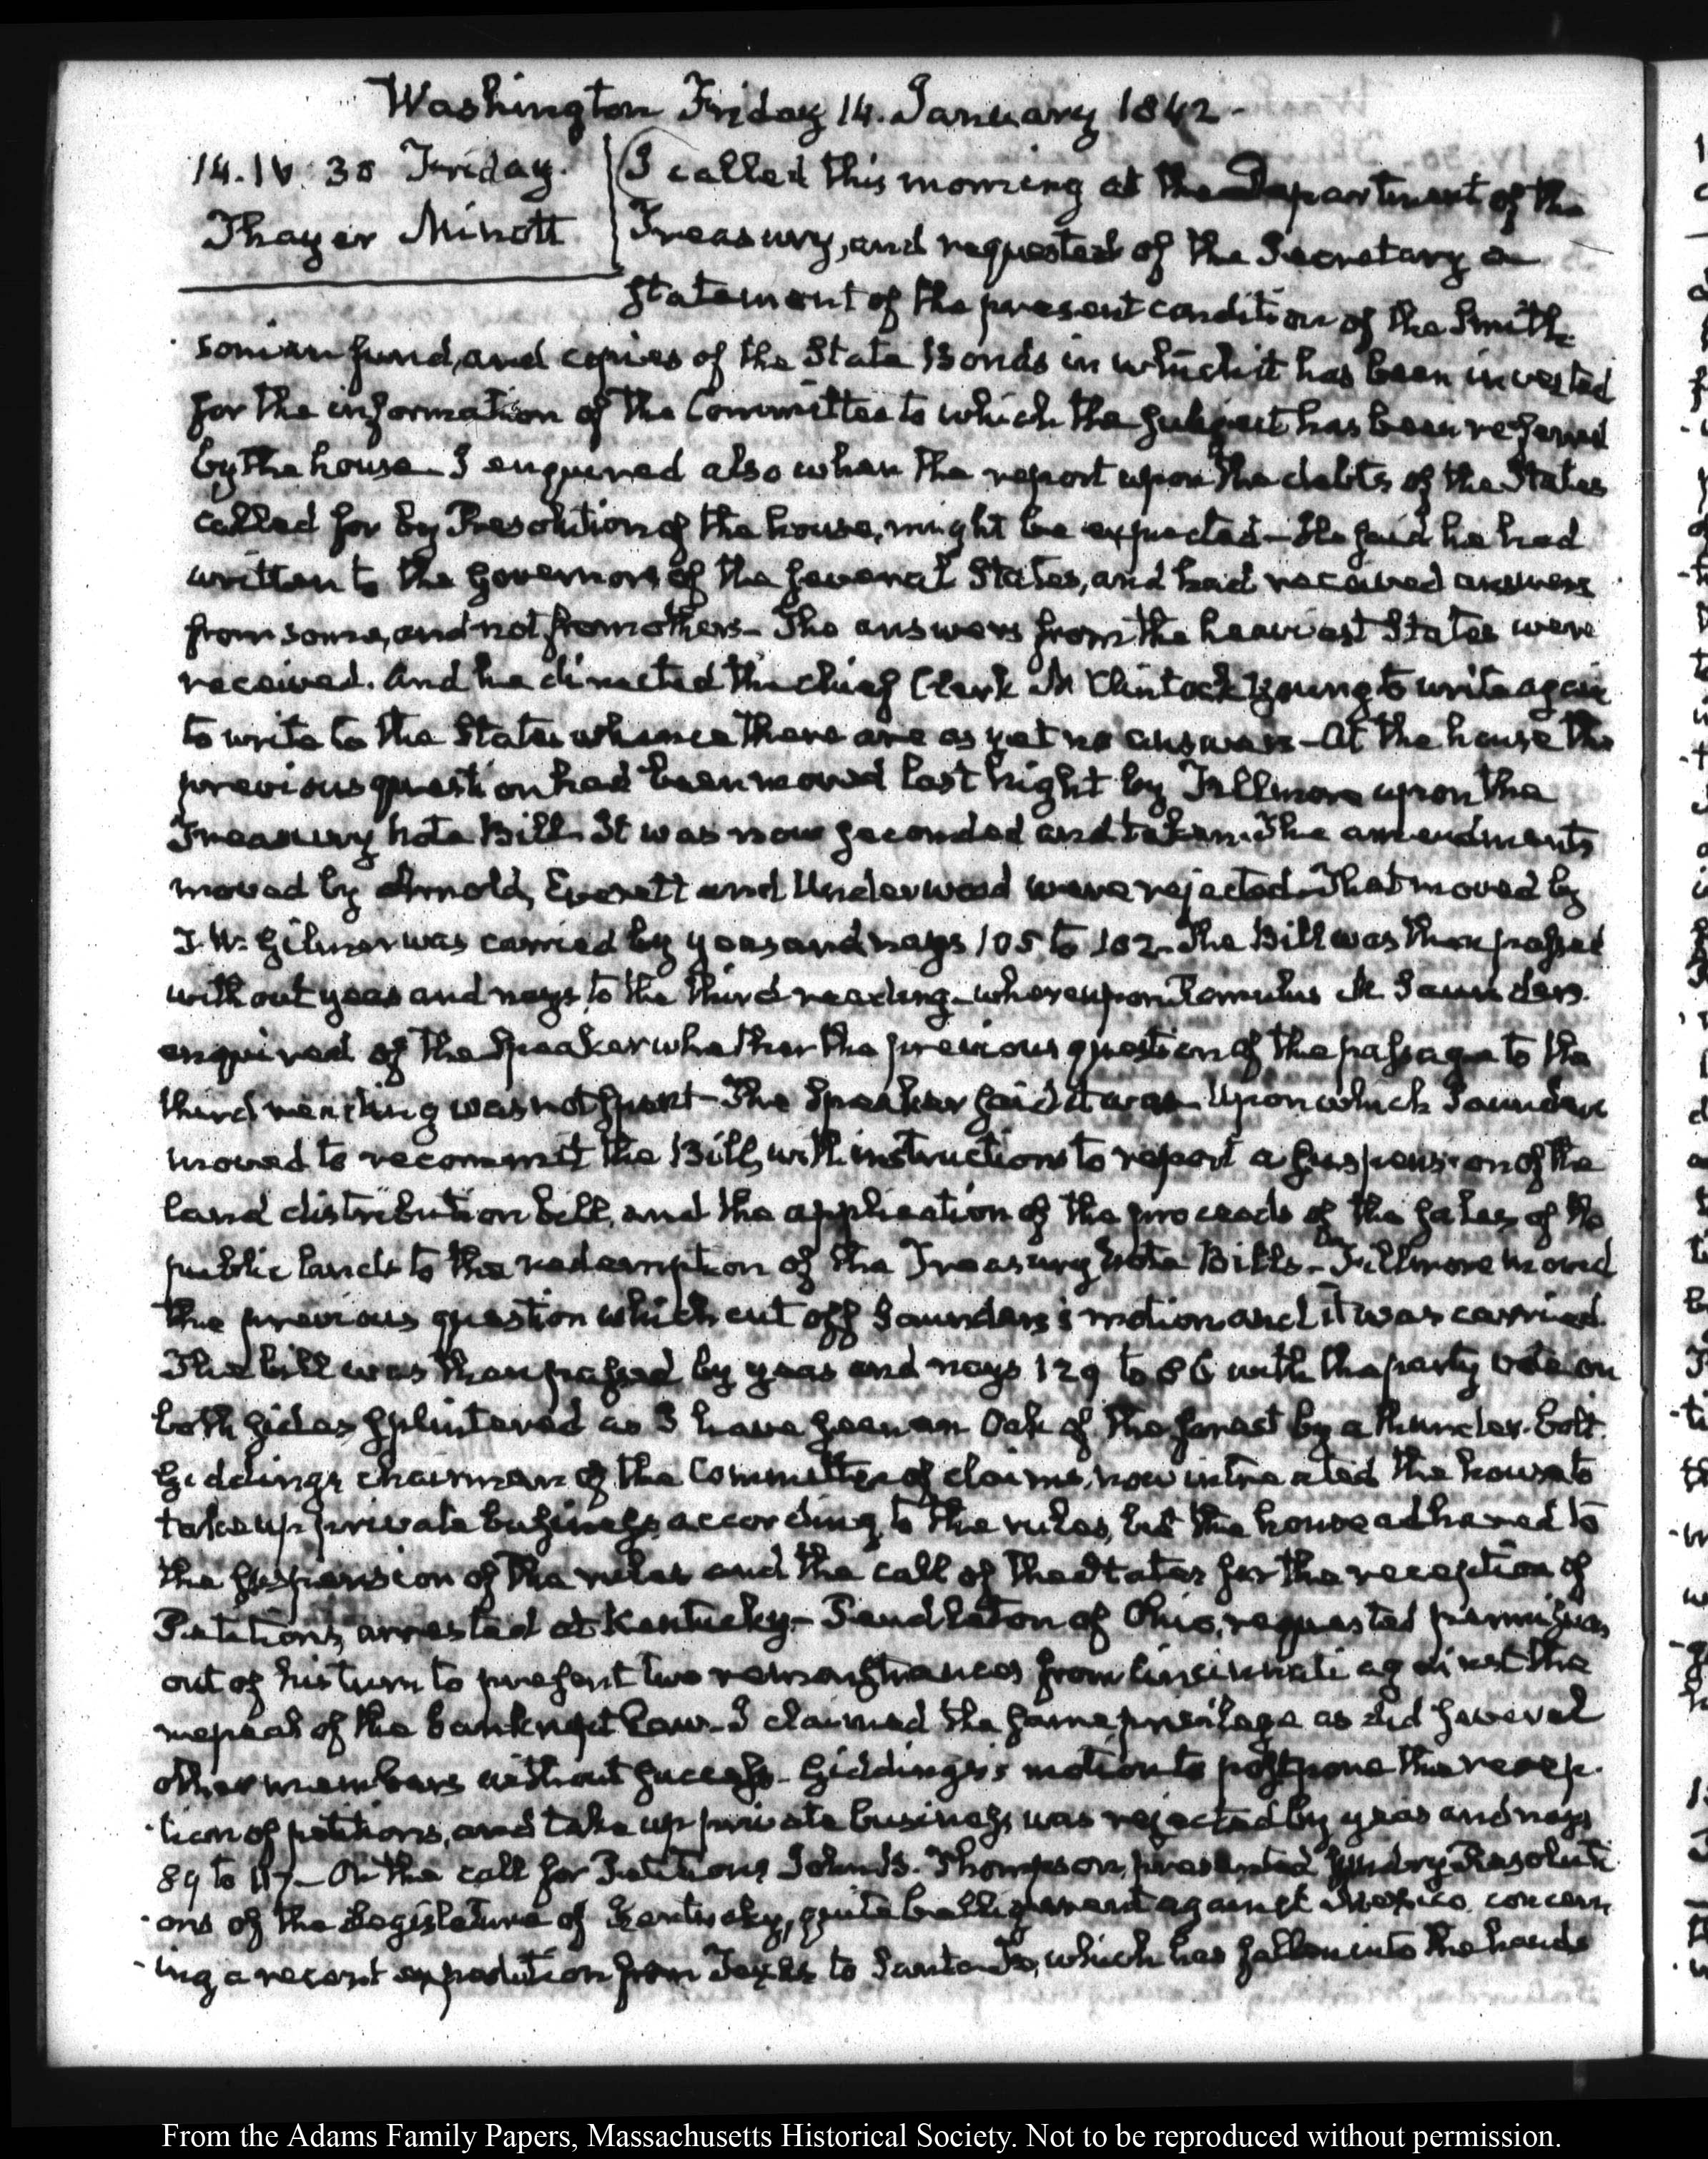 Washington Friday 14. January 1842.
14. IV. 30 Friday.
Thayer Minott
I called this morning at the Department of the
Treasury, and requested of the Secretary a
statement of the present condition of the Smith-
sonian fund, and copies of the State Bonds in which it has been invested
for the information of the Committee to which the subject has been referred
by the house. I enquired also when the report upon the debts of the States
called for by Resolution of the house, might be expected— He said he had
written to the Governors of the several States, and had received answers
from some, and not from others— The answers from the heaviest States were
received. And he directed the chief Clerk McClintock Young to write again
to write to the States whence there are as yet no answers— At the house the
previous question had been moved last night by Fillmore upon the
Treasury note Bill. It was now seconded and taken. The amendments
moved by Arnold, Everett and Underwood were rejected. That moved by
T. W. Gilmer was carried by yeas and nays 105 to 102. The Bill was then passed
without yeas and nays, to the third reading— whereupon Romulus M Saunders
enquired of the Speaker whether the previous question of the passage to the
third reading was not spent— The Speaker said it was— Upon which Saunders
moved to recommit the Bill, with instructions to report a suspension of the
land distribution bill, and the application of the proceeds of the sales of the
public lands to the redemption of the Treasury note Bills— Fillmore moved
the previous question which cut off Saunders's motion and it was carried.
The bill was then passed by yeas and nays 129 to 86 with the party vote on
both sides splintered as I have seen an Oak of the forest by a thunder-bolt.
Giddings chairman of the Committee of claims, now intreated the house to
take up private business, according to the rules, but the house adhered to
the suspension of the rules and the call of the States for the reception of
Petitions, arrested at Kentucky— Pendleton of Ohio, requested permission
out of his turn to present two remonstrances from Cincinnati against the
repeal of the bankrupt Law— I claimed the same privilege as did several
other members without success— Giddings's motion to postpone the recep-
tion of petitions, and take up private business, was rejected by yeas and nays
89 to 117— On the call for Petitions John B. Thompson, presented sundry Resoluti-
ons of the Legislature of Kentucky, quite belligerent against Mexico concern-
ing a recent expedition from Texas to Santa Fe, which has fallen into the hands
From the Adams Family Papers, Massachusetts Historical Society. Not to be reproduced without permission.